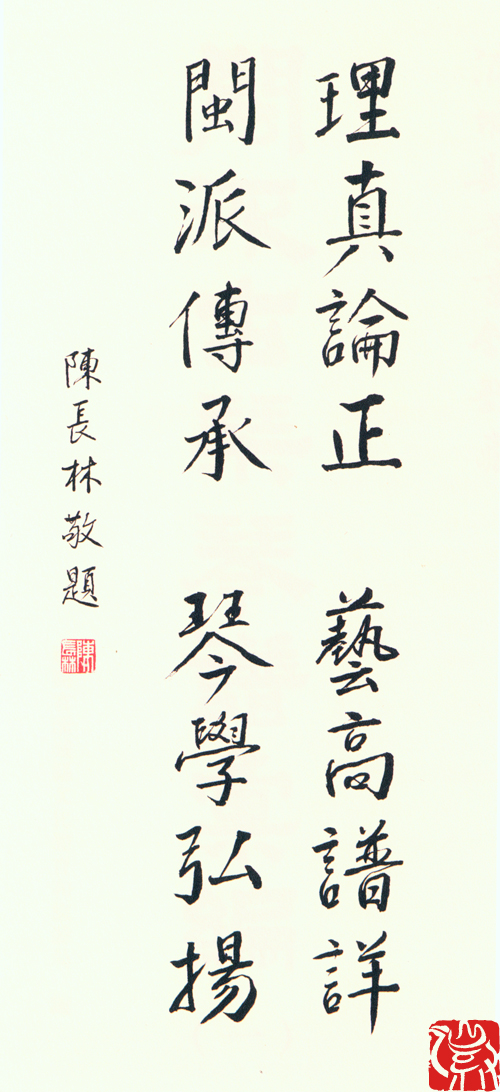 理真論正 藝高譜詳
閩派傳承 琴學弘揚
陳長林敬題
陳長林